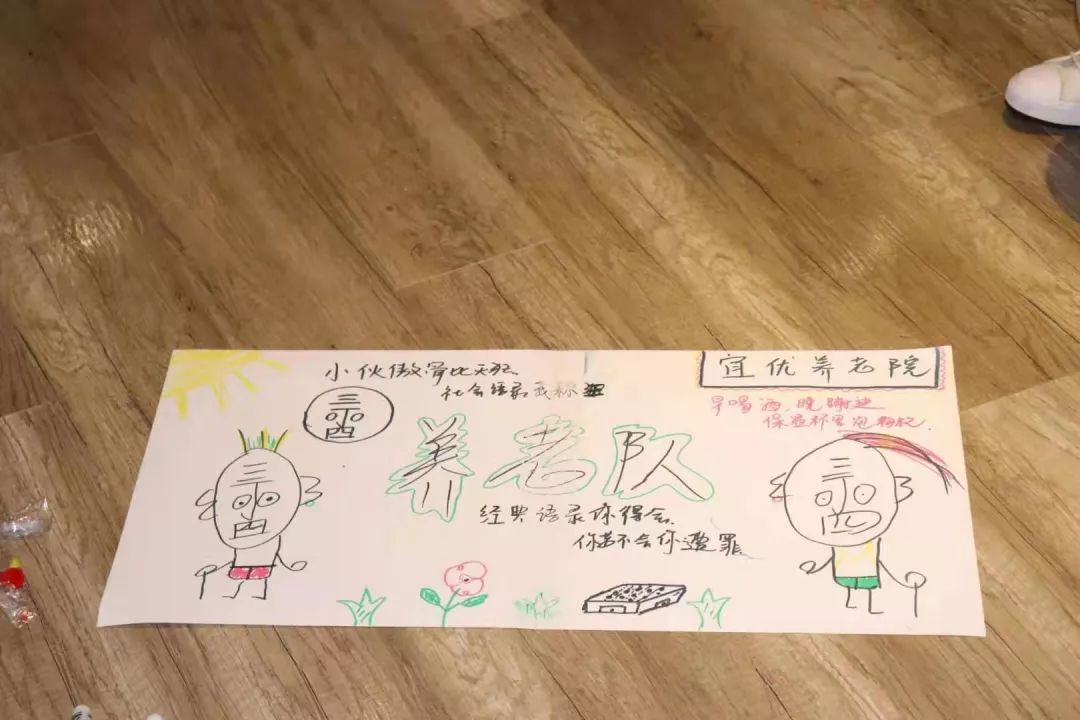 小伙傲骨比天
社会语录我称
宜优养老院
早喝酒、晚蹦迪
保温杯里泡枸杞.
养老队
经典语录你得会.
你若不会你遭罪